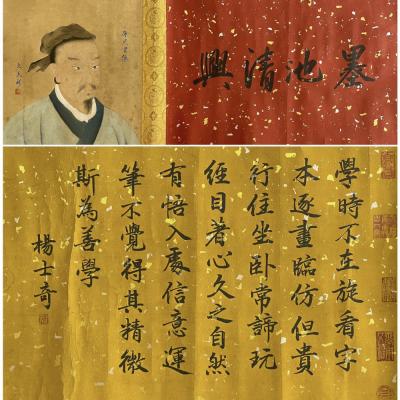 墨池清興
學時不在旋看字
本逐畫臨仿但貴
行住坐卧常諦玩
經目著心久之自然
有悟入處信意運
筆不覺得其精微
斯為善學
楊士奇